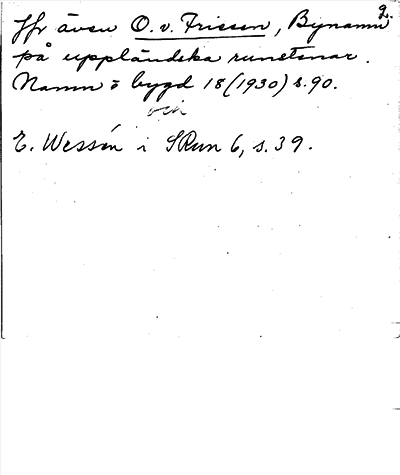 2.
Jfr även O. v. Friesen, Bynamn
på uppländska runstenar.
Namn o bygd 18 (1930) s. 90.
och
E. Wessén i SRun 6, s. 39.